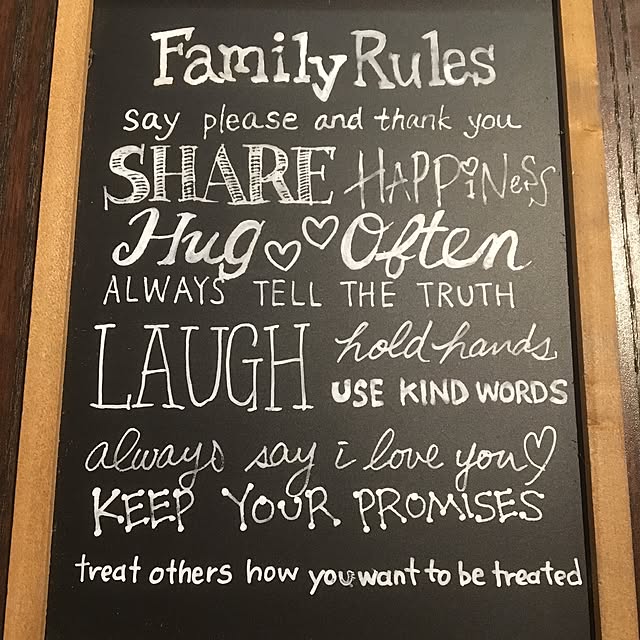 Family Rules
say please and thank you
SHARE HAPPiNeSS
Hug Often
ALWAYS TELL THE TRUTH
LAUGH hold hands
USE KIND WORDS
always say i love you
KEEP YOUR PROMISES
treat others how you want to be treated